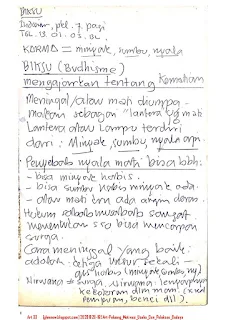 BIKSU
pkl. 7. pagi
TGL. 13. 01. 03. 
KARMA = minyak, sumbu, nyala
BIKSU (Budhisme)
mengajarkan tentang Kematian
Meninggal/atau mati diumpa-
makan sebagai "lantera yg mati
Lantera atau Lampu terdiri
dari: Minyak, sumbu, nyala api.
Penyebab nyala mati: bisa
- bisa minyak habis.
- bisa sumbu habis minyak ada.
- atau mati krn ada angin deras.
Hukum sebab akibat sangat
menentukan sso bisa mencapai
surga.
Cara meninggal yang baik:
adalah: 
habis (minyak, sumbu,
Nirwana = surga, nirwana: lenyapnya
kekotoran dlm
benci dll).